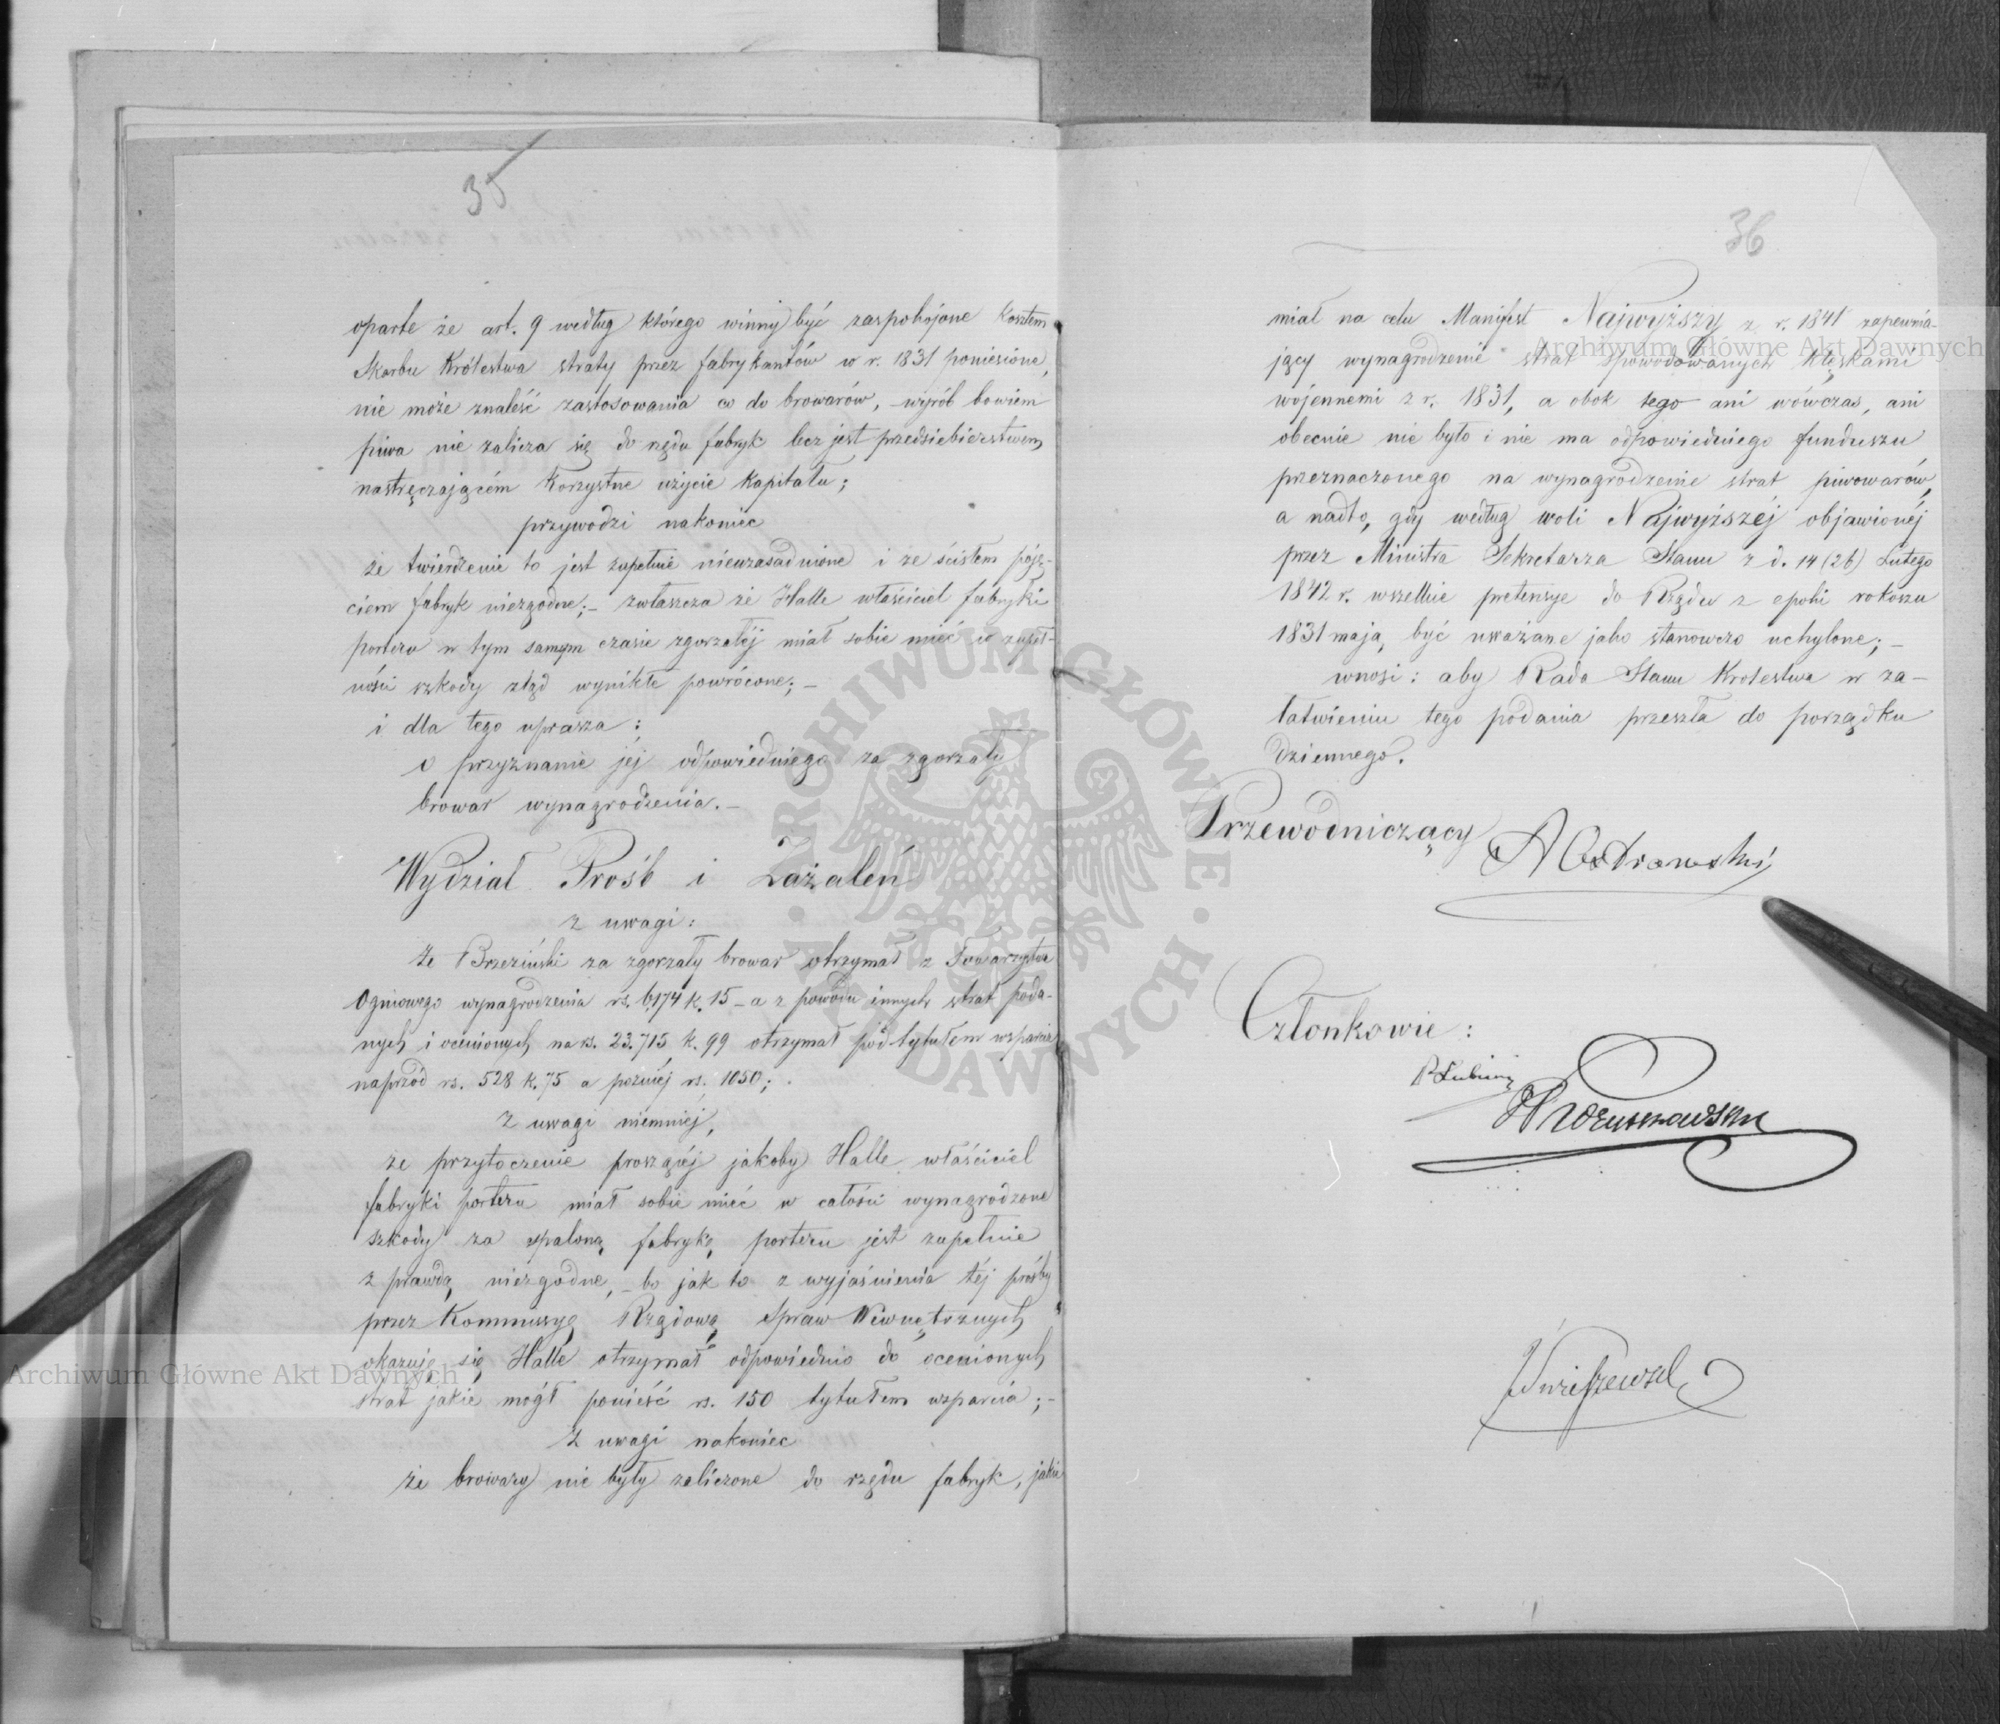 35
oparte że art. 9 według którego winny być zaspokojone kosztem
Skarbu Królestwa straty przez fabrykantów w r. 1831 poniesione,
nie może znaleść zastosowania co do browarów, – wyrób bowiem
piwa nie zalicza się do rzędu fabryk lecz jest przedsiebierstwem
nastręczającém korzystne użycie kapitału;
przywodzi nakoniec
że twierdzenie to jest zupełnie nieuzasadnione i ze ścisłem poję-
ciem fabryk niezgodne; – zwłaszcza że Halle właściciel fabryki
porteru w tym samym czasie zgorzałéj miał sobie mieć w zupeł-
ności szkody ztąd wynikłe powrócone; –
i dla tego uprasza:
o przyznanie jéj odpowiedniego za zgorzały
browar wynagrodzenia. –
Wydział Próśb i Zażaleń
z uwagi:
że Brzeziński za zgorzały browar otrzymał z Towarzystwa
Ogniowego wynagrodzenia rs. 6174 k. 15 – a z powodu innych strat poda-
nych i ocenionych na rs. 23.715 k. 99 otrzymał pod tytułem wsparcia
naprzód rs. 528 k. 75 a poźniéj rs. 1050;
z uwagi niemniéj,
że przytoczenie proszącéj jakoby Halle właściciel
fabryki porteru miał sobie mieć w całości wynagrodzone
szkody za spaloną fabrykę porteru jest zupełnie
z prawdą niezgodne, – bo jak to z wyjaśnienia téj prośby
przez Kommissyę Rządową Spraw Wewnętrznych
okazuje się Halle otrzymał odpowiednio do ocenionych
strat jakie mógł ponieść rs. 150 tytułem wsparcia; –
z uwagi nakoniec
że browary nie były zaliczone do rzędu fabryk, jakie
36
miał na celu Manifest Najwyższy z r. 1841 zapewnia-
jący wynagrodzenie strat spowodowanych klęskami
wojennemi z r. 1831, a obok tego ani wówczas, ani
obecnie nie było i nie ma odpowiedniego funduszu
przeznaczonego na wynagrodzenie strat piwowarów,
a nadto, gdy według woli Najwyższéj objawionéj
przez Ministra Sekretarza Stanu z d. 14 (26) Lutego
1842 r. wszelkie pretensye do Rządu z epoki rokoszu
1831 mają być uważane jako stanowczo uchylone; –
wnosi: aby Rada Stanu Królestwa w za-
łatwieniu tego podania przeszła do porządku
dziennego.
Przewodniczący
A Ostrowski
Członkowie:
Archiwum Główne Akt Dawnych
Archiwum Główne Akt Dawnych
ARCHIWUM GŁÓWNE AKT DAWNYCH